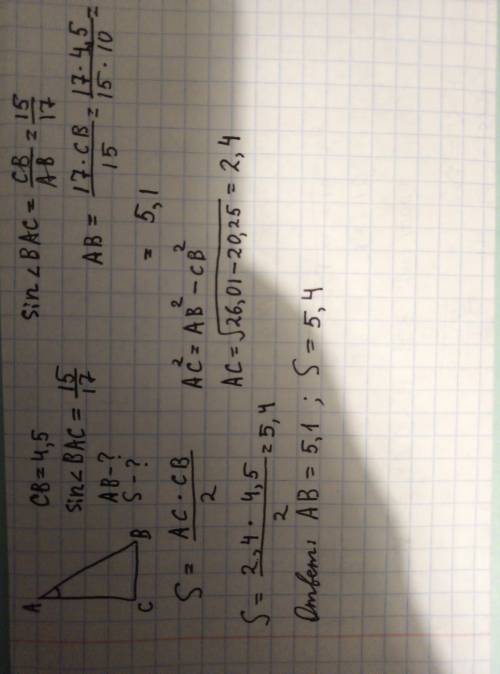 A
C
B
CB = 4,5
sin∠BAC = 15/17
AB - ?
S - ?
sin∠BAC = CB/AB = 15/17
AB = 17·CB/15 = 17·4,5/15·10 =
= 5,1
S = AC·CB/2
AC² = AB² - CB²
AC = √26,01-20,25 = 2,4
S = 2,4·4,5/2 = 5,4
Ответ: AB = 5,1 ; S = 5,4